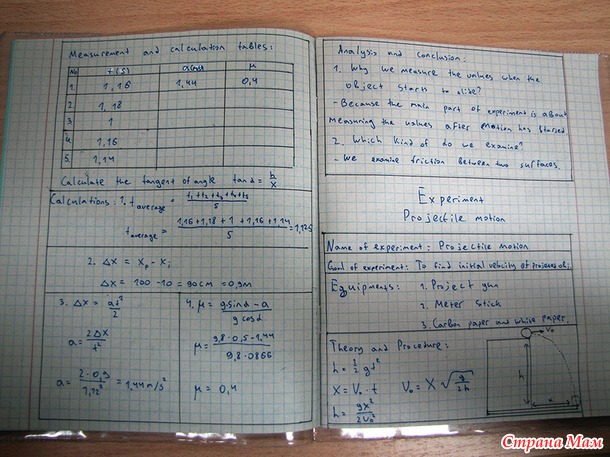 Measurement and calculation tables:
No t(s) a(m/s²) μ
1. 1,16 1,44 0,4
2. 1,18
3. 1
4. 1,16
5. 1,14
Calculate the tangent of angle tan α = h/x
Calculations: 1. t average = (t₁+t₂+t₃+t₄+t₅)/5
t average = (1,16+1,18+1+1,16+1,14)/5 = 1,125
2. Δx = Xf - Xi
Δx = 100 - 10 = 90cm = 0,9m
3. Δx = at²/2
a = 2Δx/t²
a = 2·0,9/1,12² = 1,44 m/s²
4. μ = (g sinα - a)/(g cosα)
μ = (9,8·0,5 - 1,44)/(9,8·0,866)
μ = 0,4
Analysis and conclusion:
1. Why we measure the values when the
object starts to slide?
- Because the main part of experiment is about
measuring the values after motion has started.
2. Which kind of do we examine?
- We examine friction between two surfaces.
Experiment
Projectile motion
Name of experiment: Projectile motion
Goal of experiment: To find initial velocity of
Equipments: 1. Project gun
2. Meter stick
3. Carbon paper and white paper.
Theory and Procedure:
h = 1/2 gt²
X = V₀ · t V₀ = X √(g/2h)
h = gx²/2V₀²
V₀
h
x
Страна Мам